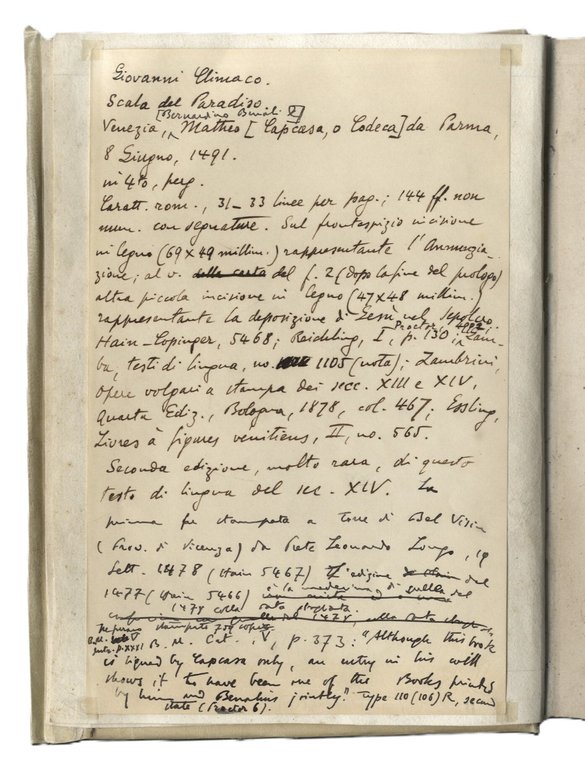 Giovanni Climaco.
Scala del Paradiso.
[Bernardino Benali e]
Venezia, Matheo [Capcasa, o Codeca] da Parma,
8 Giugno, 1491.
in 4to, perg.
Caratt. rom., 31-33 linee per pag.; 144 ff. non
num. con segnature. Sul frontespizio incisione
in legno (69 x 49 millim.) rappresentante l'Annunzia-
zione; al v. della carta del f. 2 (dopo la fine del prologo)
altra piccola incisione in legno (47 x 48 millim.)
rappresentante la deposizione di Gesù nel sepolcro.
Hain-Copinger, 5468; Reichling, I, p. 130; Zam-
Proctor, 4992;
ba, testi di lingua, no. 1105 (nota); Zambrini,
Opere volgari a stampa dei secc. XIII e XIV,
Quarta Ediz., Bologna, 1878, col. 467; Essling,
Livres à figures venitiens, II, no. 565.
Seconda edizione, molto rara, di questo
testo di lingua del sec. XIV. La
prima fu stampata a Torre di Bel Vicin
(Prov. di Vicenza) da Prete Leonardo Longo, 19
Sett. 1478 (Hain 5467) L'edizione del
1477 (Hain 5466) è la medesima di quella del
1478 colla data sbagliata.
Ne furono stampate 700 copie
p. XXXI B. M. Cat., V, p. 373: "Although this book
is signed by Capcasa only, an entry in his will
shows it to have been one of the Books printed
by him and Benalius jointly." Type 110 (106) R, second
state (Proctor 6).